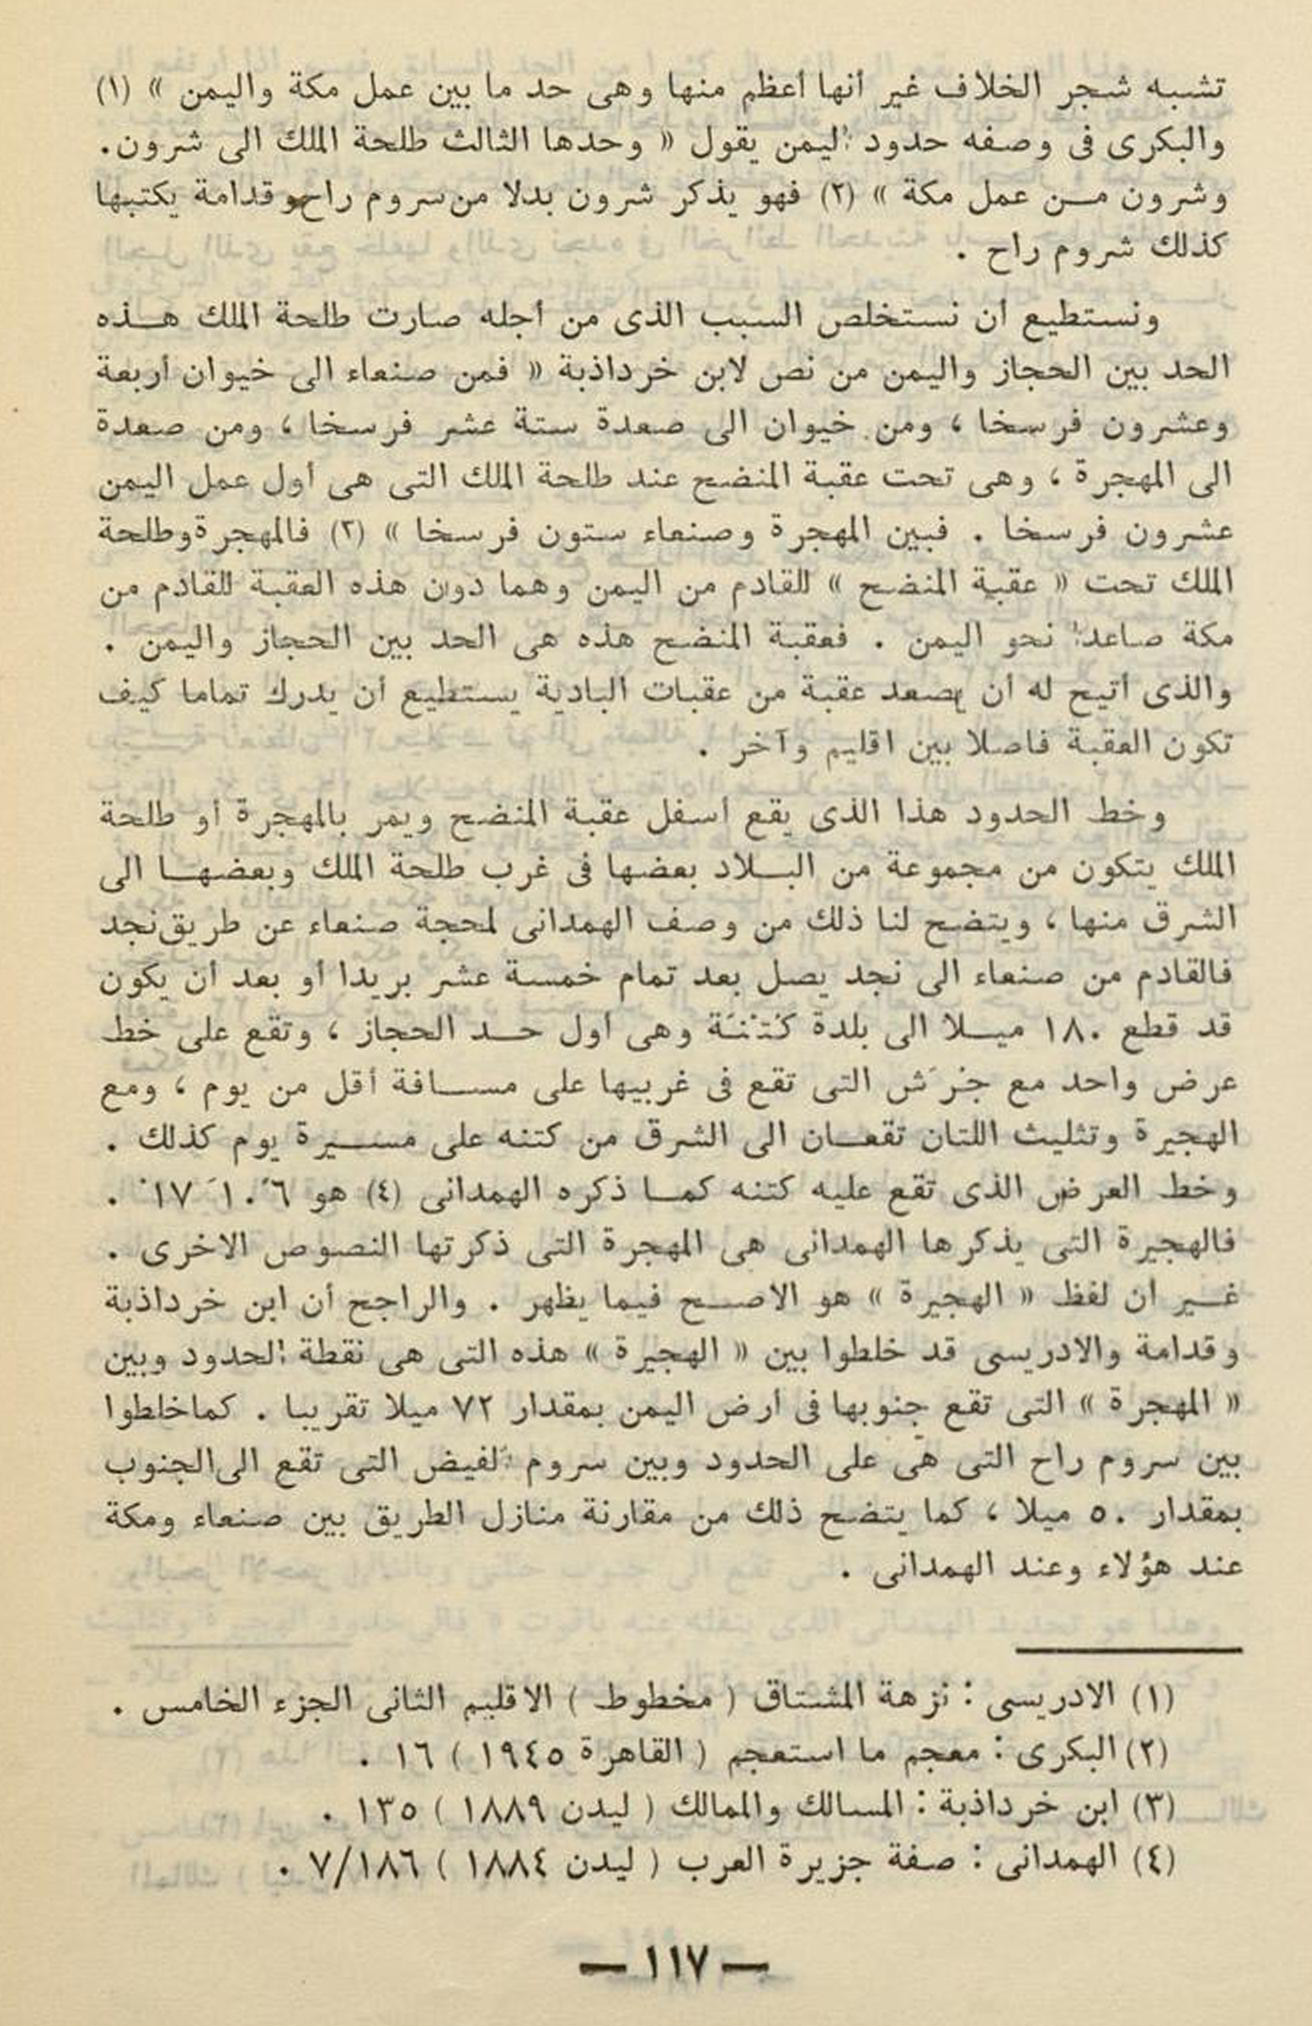 تشبه شجر الخلاف غير أنها أعظم منها وهى حد ما بين عمل مكة واليمن » (١)
والبكرى فى وصفه حدود اليمن يقول « وحدها الثالث طلحة الملك الى شرون.
وشرون مـن عمل مكة » (٢) فهو يذكر شرون بدلا من سروم راح وقدامة يكتبها
كذلك شروم راح .
ونستطيع أن نستخلص السبب الذى من أجله صارت طلحة الملك هـذه
الحد بين الحجاز واليمن من نص لابن خرداذبة « فمن صنعاء الى خيوان أربعة
وعشرون فرسخا ، ومن خيوان الى صعدة ستة عشر فرسخا ، ومن صعدة
الى المهجرة ، وهى تحت عقبة المنضح عند طلحة الملك التى هى أول عمل اليمن
عشرون فرسخا . فبين المهجرة وصنعاء ستون فرسخا » (٣) فالمهجرة وطلحة
الملك تحت « عقبة المنضح » للقادم من اليمن وهما دون هذه العقبة للقادم من
مكة صاعدا نحو اليمن . فعقبة المنضح هذه هى الحد بين الحجاز واليمن .
والذى أتيح له أن يصعد عقبة من عقبات البادية يستطيع أن يدرك تماما كيف
تكون العقبة فاصلا بين اقليم وآخر .
وخط الحدود هذا الذى يقع أسفل عقبة المنضح ويمر بالمهجرة أو طلحة
الملك يتكون من مجموعة من البـلاد بعضها فى غرب طلحة الملك وبعضهـا الى
الشرق منها ، ويتضح لنا ذلك من وصف الهمدانى لمحجة صنعاء عن طريق نجد
فالقادم من صنعاء الى نجد يصل بعد تمام خمسة عشر بريدا أو بعد أن يكون
قد قطع ١٨٠ ميـلا الى بلدة كُتْنَة وهى أول حـد الحجاز ، وتقع على خط
عرض واحد مع جُرَش التى تقع فى غربيها على مسـافة أقل من يوم ، ومع
الهجيرة وتثليث اللتان تقعـان الى الشرق من كتنه على مسـيرة يوم كذلك .
وخط العرض الذى تقع عليه كتنه كمـا ذكره الهمدانى (٤) هو ٦ً ١٠َ ١٧ْ .
فالهجيرة التى يذكرها الهمدانى هى المهجرة التى ذكرتها النصوص الاخرى .
غـير أن لفظ « الهجيرة » هو الاصـح فيما يظهر . والراجح أن ابن خرداذبة
وقدامة والادريسى قد خلطوا بين « الهجيرة » هذه التى هى نقطة الحدود وبين
« المهجرة » التى تقع جنوبها فى أرض اليمن بمقدار ٧٢ ميلا تقريبا . كما خلطوا
بين سروم راح التى هى على الحدود وبين سروم الفيض التى تقع الى الجنوب
بمقدار ٥٠ ميلا ، كما يتضح ذلك من مقارنة منازل الطريق بين صنعاء ومكة
عند هؤلاء وعند الهمدانى .
(١) الادريسى : نزهة المشتاق ( مخطوط ) الاقليم الثانى الجزء الخامس .
(٢) البكرى : معجم ما استعجم ( القاهرة ١٩٤٥ ) ١٦ .
(٣) ابن خرداذبة : المسالك والممالك ( ليدن ١٨٨٩ ) ١٣٥ .
(٤) الهمدانى : صفة جزيرة العرب ( ليدن ١٨٨٤ ) ٧/١٨٦ .
— ١١٧ —